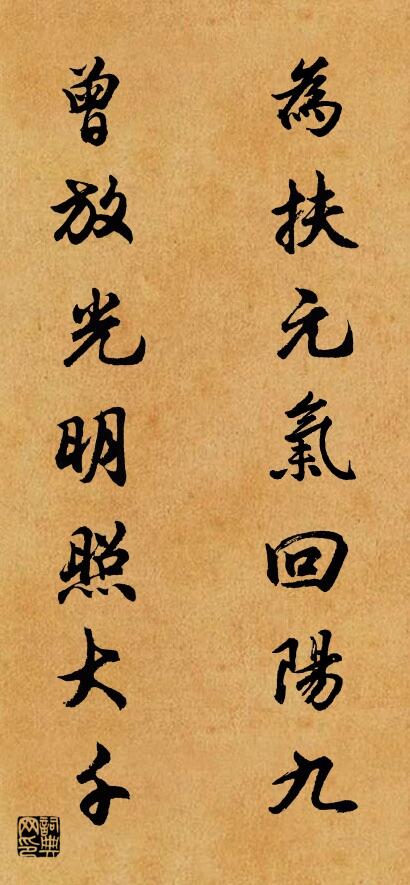 為扶元氣回陽九
曾放光明照大千
詞典网印